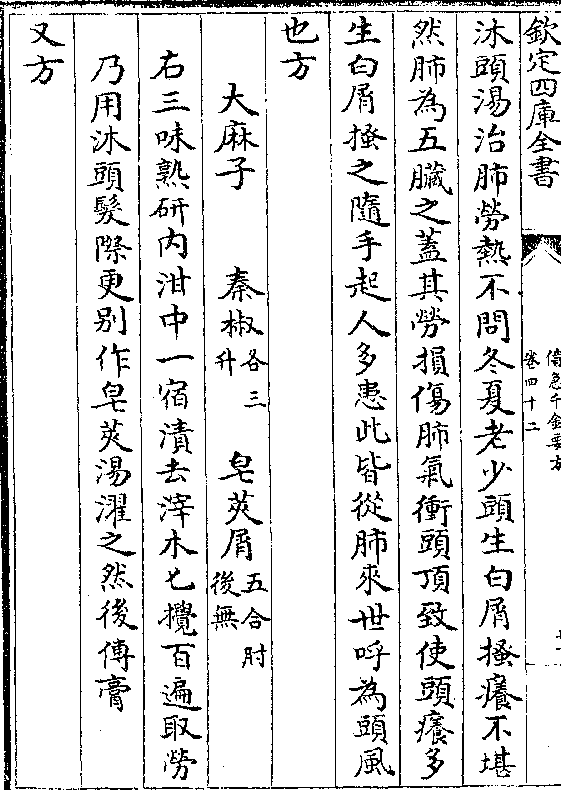 欽定四庫全書
備急千金要方
卷四十二
沐頭湯治肺勞熱不問冬夏老少頭生白屑搔癢不堪
然肺為五臟之蓋其勞損傷肺氣衝頭頂致使頭癢多
生白屑搔之隨手起人多患此皆從肺來世呼為頭風
也方
大麻子 秦椒各三升 皂莢屑五合肘後無
右三味熟研内泔中一宿漬去滓木匕攪百遍取勞
乃用沐頭髮際更别作皂莢湯濯之然後傅膏
又方